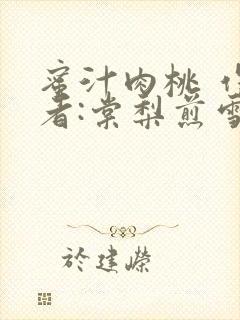 蜜汁肉桃 作
者:棠梨煎雪
於建嶸